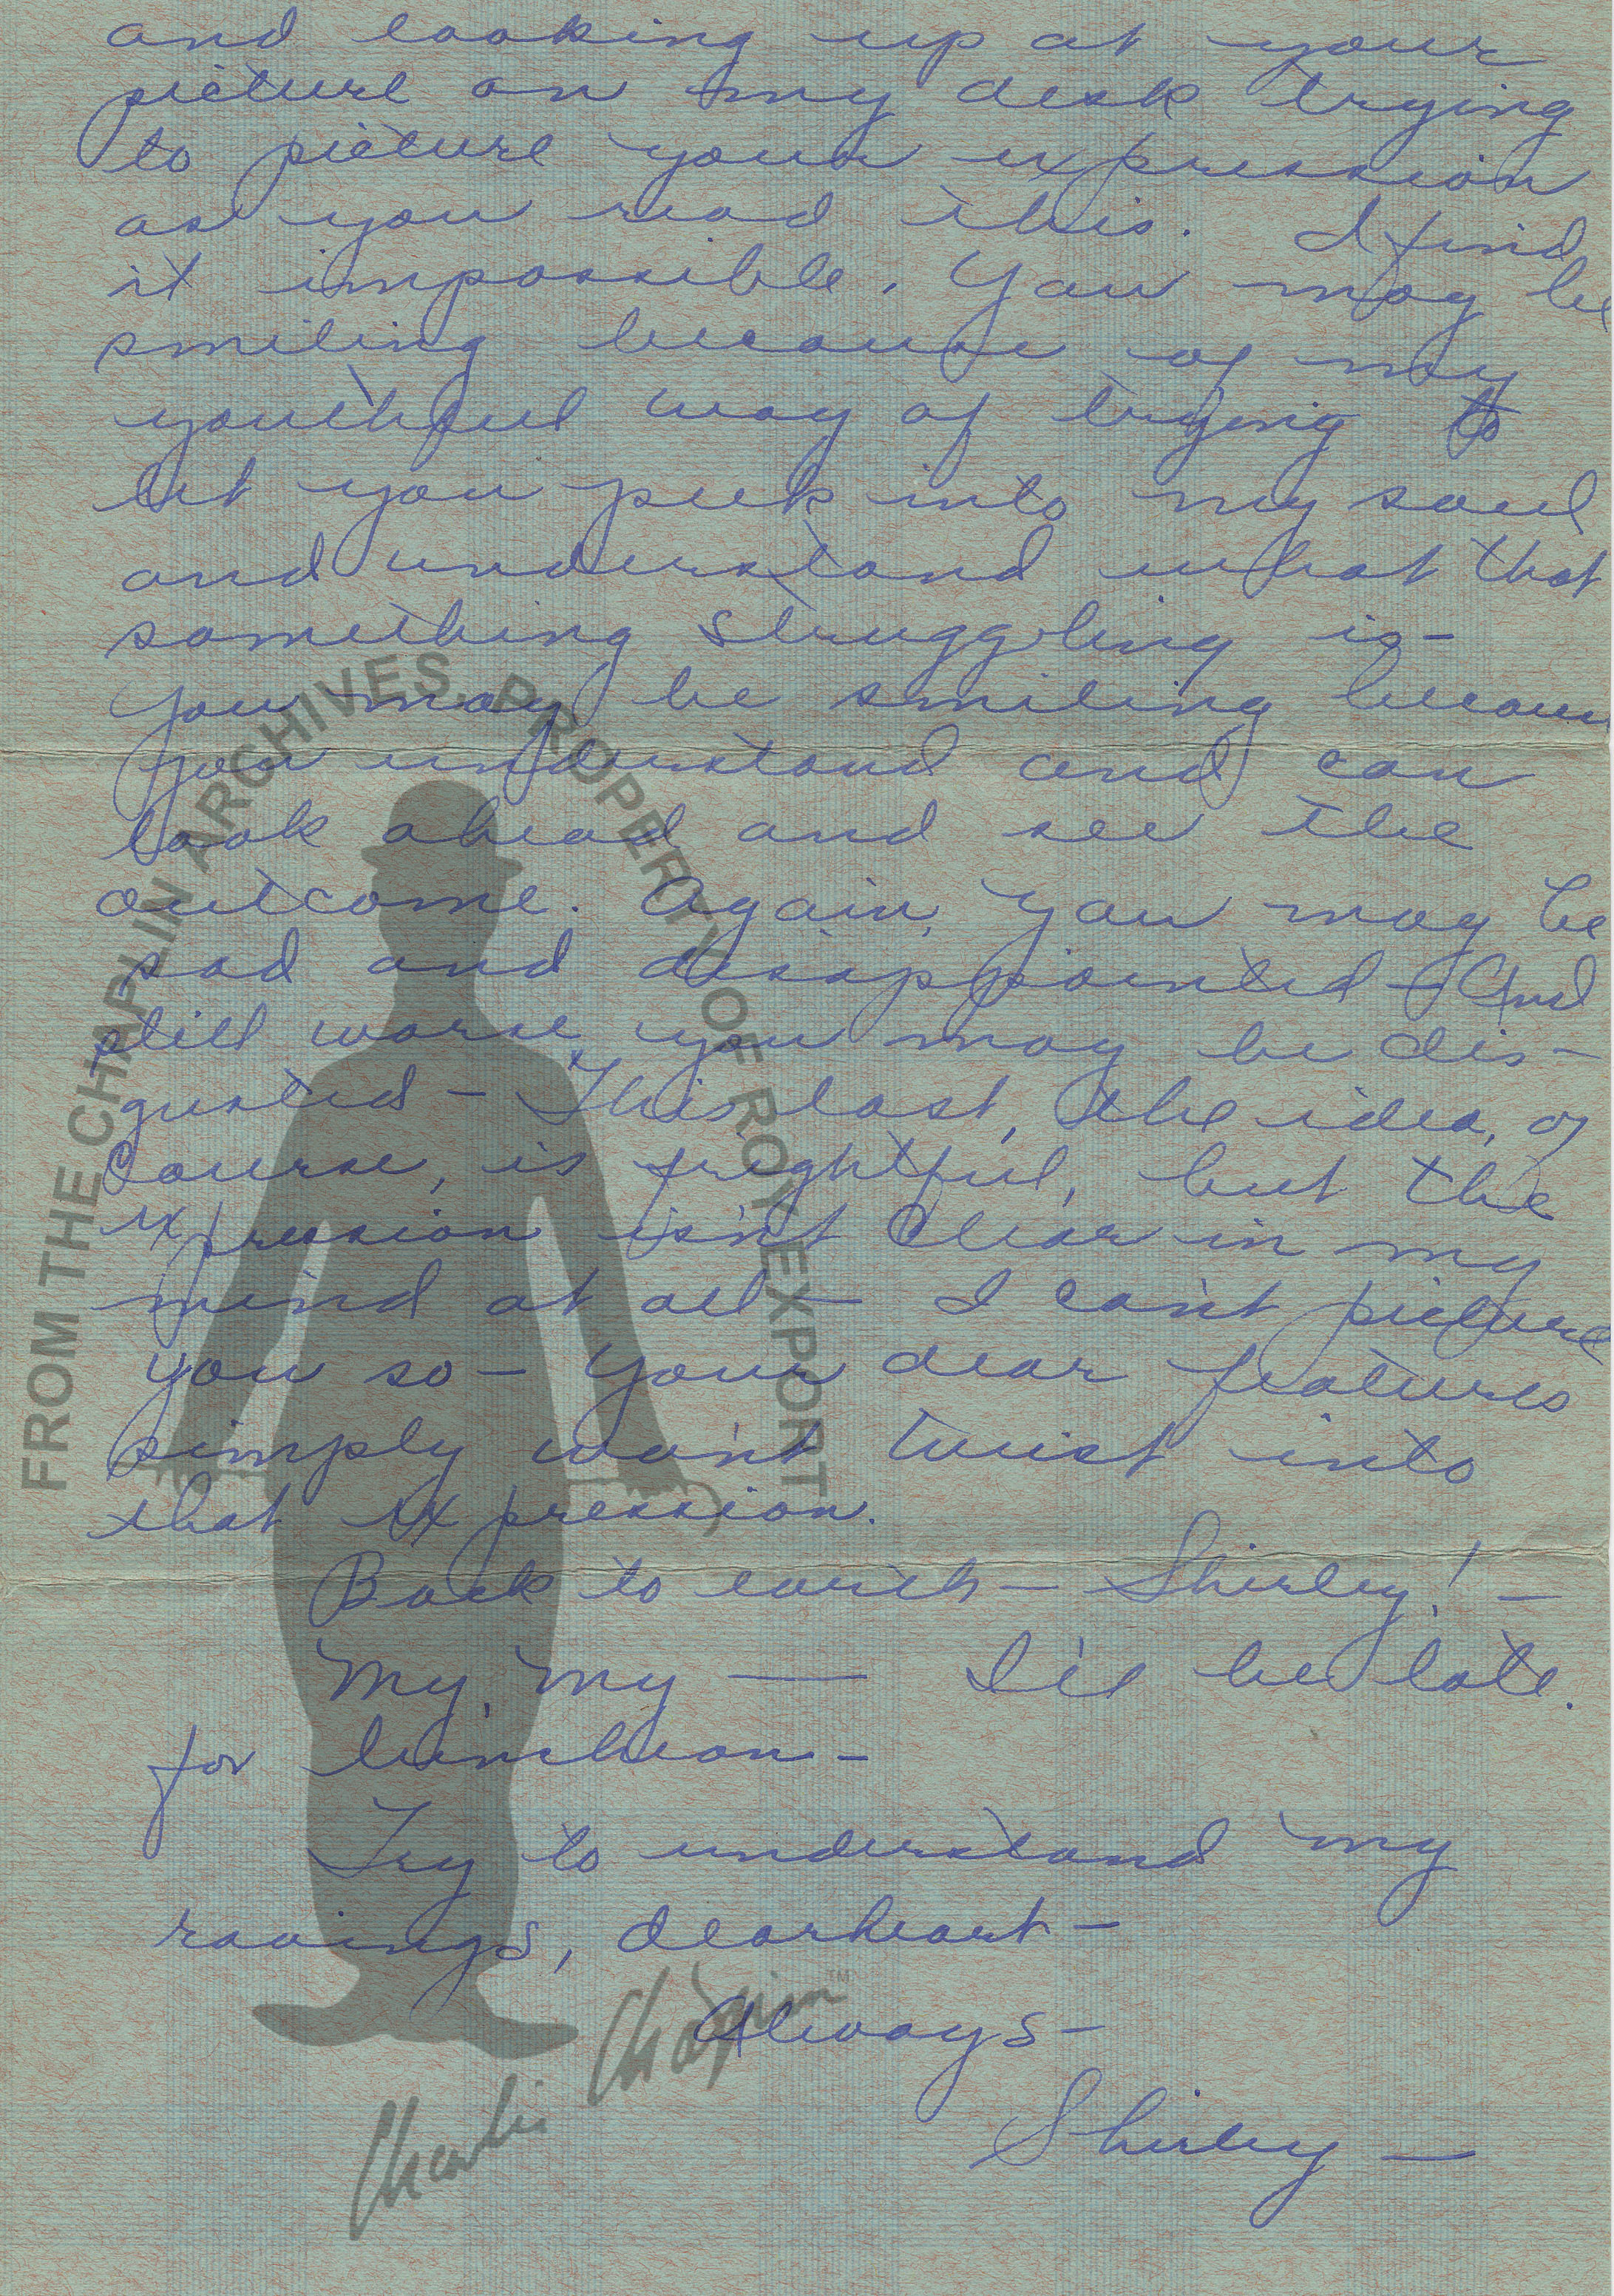 and looking up at your
picture on my desk trying
to picture your expression
as you read this. I find
it impossible. You may be
smiling because of my
youthful way of trying to
let you peek into my soul
and understand what that
something struggling is-
you may be smiling because
you understand and can
look ahead and see the
outcome. Again, you may be
sad and disappointed - And
still worse, you may be dis-
gusted - This last, the idea, of
Course, is frightful, but the
expression isn't Clear in my
mind at all - I can't picture
you so - your dear features
simply won't twist into
that expression.
Back to earth - Shirley! -
My, my — I'll be late.
for luncheon -
Try to understand my
ravings, dearheart -
Always -
Shirley —
FROM THE CHAPLIN ARCHIVES, PROPERTY OF ROY EXPORT
Charlie Chaplin™